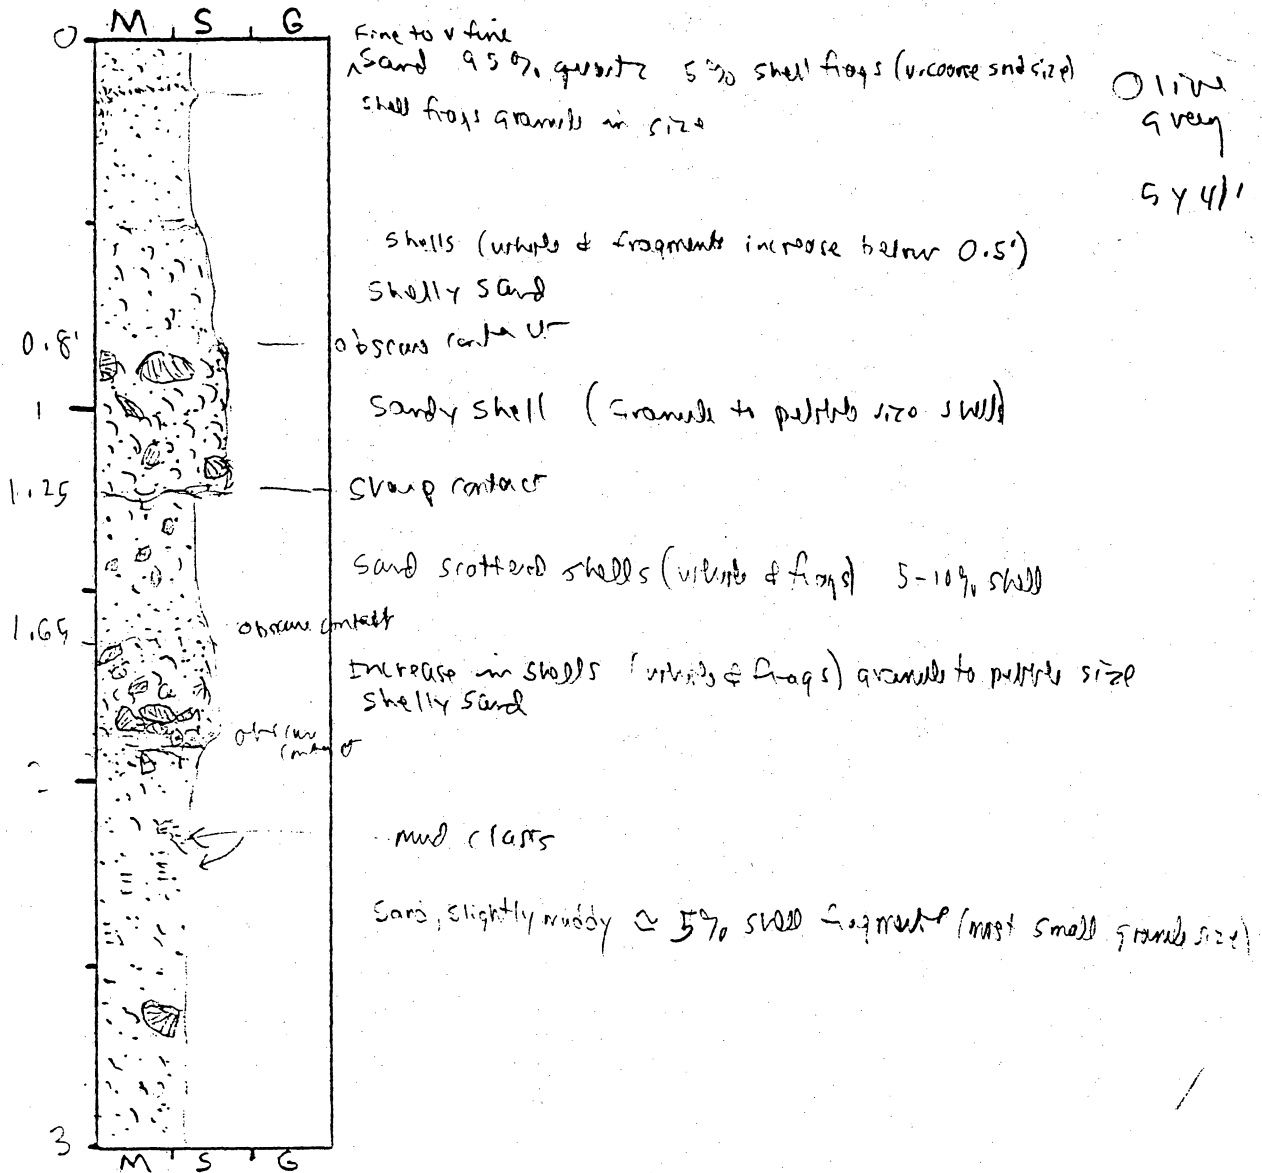 M S G
0
Fine to v fine
^Sand 95% quartz 5% shell frags (v.coarse snd size)
Olive
grey
shell frags granule in size
5 Y 4/1
shells (whole & fragments increase below 0.5')
shelly sand
0.8'
obscure contact
1
Sandy shell (Granule to pebble size shell)
1.25
sharp contact
Sand scattered shells (whole & frags) 5-10% shell
1.65
obscure contact
Increase in shells (whole & frags) granule to pebble size
shelly sand
obscure
contact
2
mud clasts
Sand, slightly muddy ≃ 5% shell fragments (most small granule size)
3
M S G